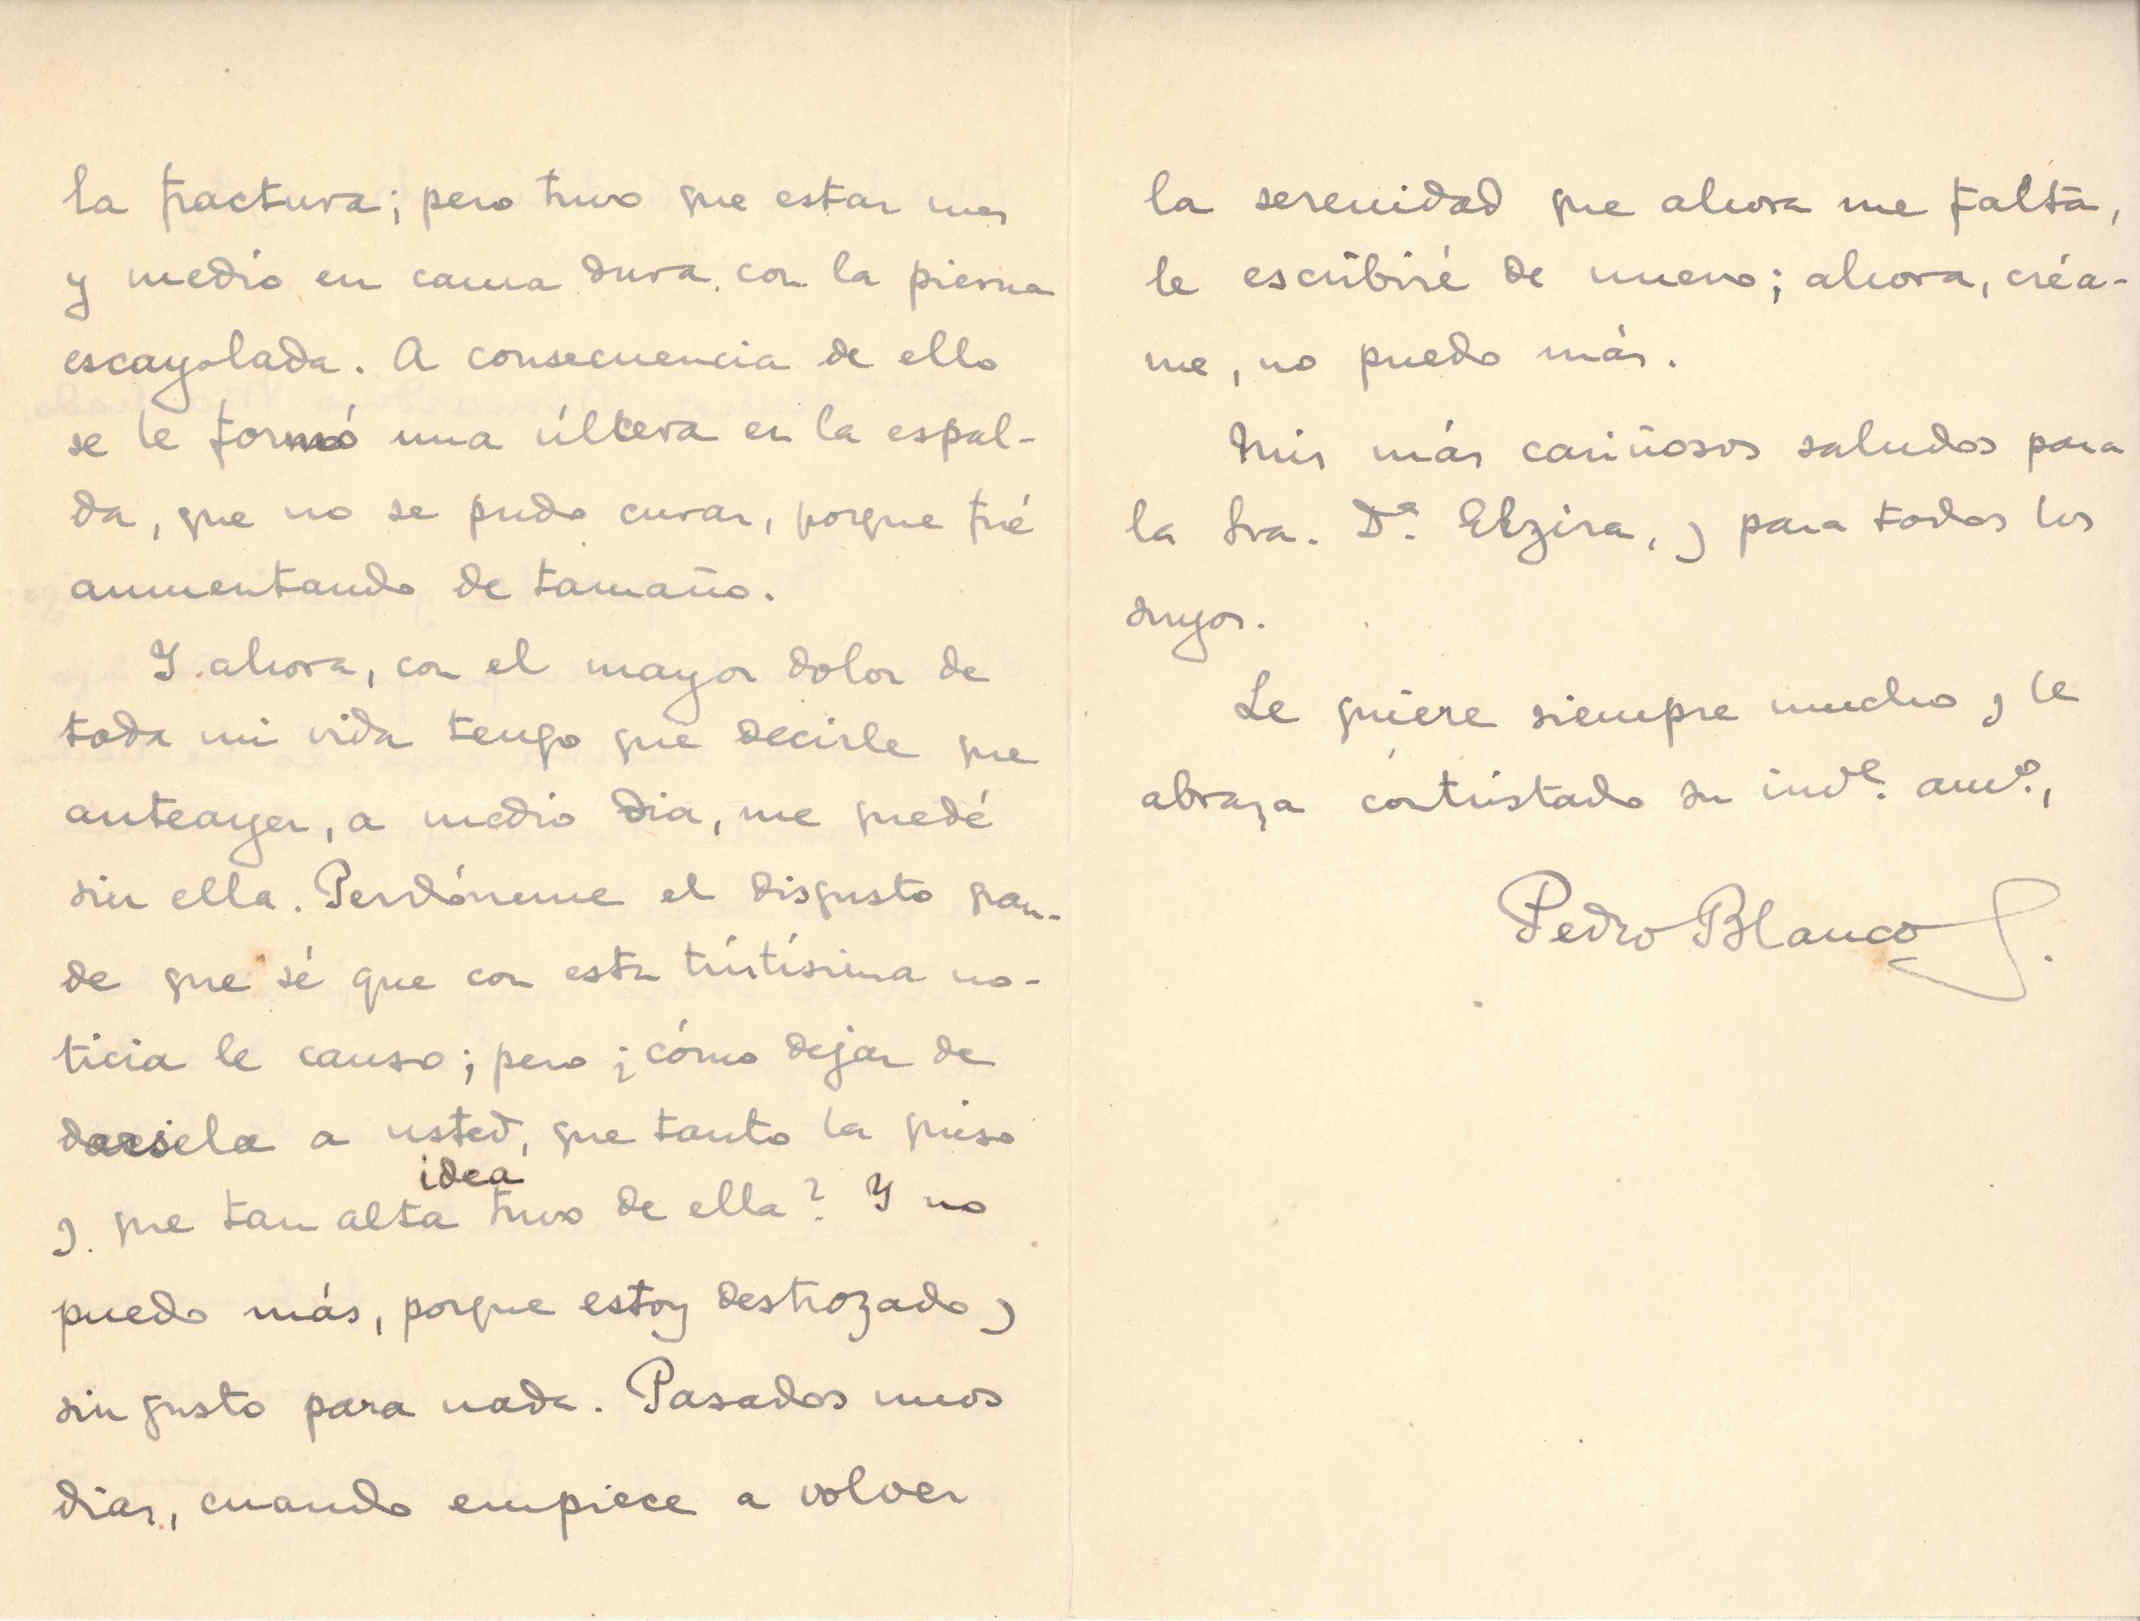 la fractura; pero tuvo que estar mes
y medio en cama dura, con la pierna
escayolada. A consecuencia de ello
se le formó una úlcera en la espal-
da, que no se pudo curar, porque fué
aumentando de tamaño.
Y ahora, con el mayor dolor de
toda mi vida tengo que decirle que
anteayer, a medio dia, me quedé
sin ella. Perdóneme el disgusto gran-
de que sé que con esta tristísima no-
ticia le causo; pero ¡cómo dejar de
darsela a usted, que tanto la quiso
idea
y que tan alta tuvo de ella? Y no
puedo más, porque estoy destrozado y
sin gusto para nada. Pasados unos
dias, cuando empiece a volver
la serenidad que ahora me falta,
le escribiré de nuevo; ahora, créa-
me, no puedo más.
Mis más cariñosos saludos para
la Sra. Dª. Elzira, y para todos los
suyos.
Le quiere siempre mucho y le
abraza contristado su invle. amº.,
Pedro Blanco S.